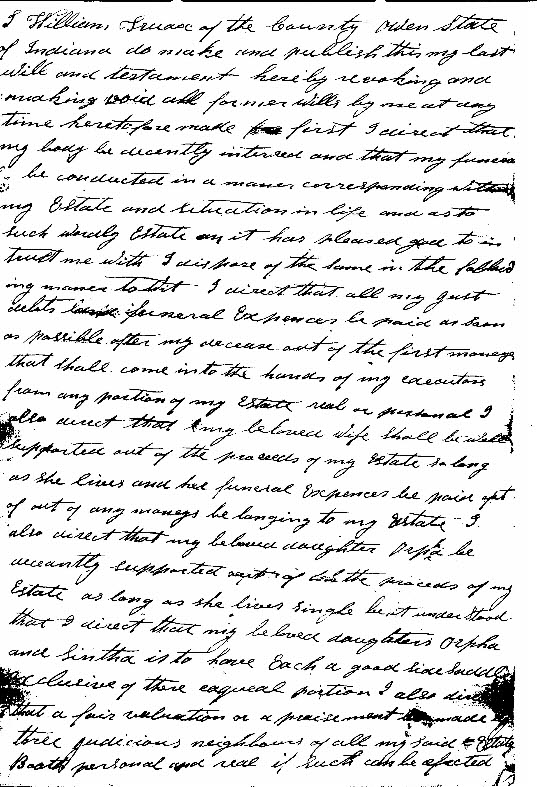 I William Truax of the County Owen State
of Indiana do make and publish this my last
will and testament hereby revoking and
making void all former wills by me at any
time heretofore made first I direct that
my body be decently interred and that my funera
be conducted in a maner corresponding with
my Estate and situation in life and as to
such wordly Estate as it has pleased god to in
trust me with I dispose of the same in the follow
ing maner to wit I direct that all my just
debts funeral Expences be paid as soon
as possible after my decease out of the first moneys
that shall come into the hands of my executors
from any portion of my Estate real or personal I
also direct that my beloved wife shall be well
supported out of the proceeds of my Estate so long
as she lives and her funeral Expences be paid out
of out of any moneys be langing to my Estate I
also direct that my beloved daughter Orpha be
decantly supported out of the proceeds of my
Estate as long as she lives single be it under stood
that I direct that my beloved daughters Orpha
and Sintha is to have Each a good side saddle
Exclucive of there eaqueal portion I also dir
that a fair valuation or a praisement be made by
three judicious neighbours of all my said Estate
Booth personal and real if such can be efected